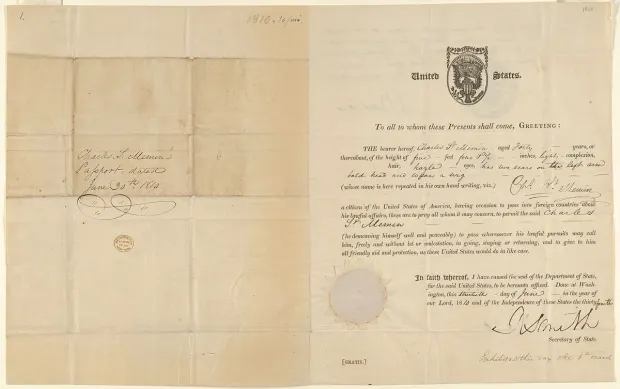 1.
1810
Charles St. Memin's
Passport dated
June 30th 1810
United States.
To all to whom these Presents shall come, GREETING:
THE bearer hereof, Charles St. Memin aged Forty years, or
thereabout, of the height of five feet four inches, light complexion,
hair, hazle eyes, has two scars on the left arm
bald head and wears a wig
(whose name is here repeated in his own hand writing, viz.) St. Memin
a citizen of the United States of America, having occasion to pass into foreign countries about
his lawful affairs, these are to pray all whom it may concern, to permit the said Charles
St. Memin
(he demeaning himself well and peaceably) to pass wheresoever his lawful pursuits may call
him, freely and without let or molestation, in going, staying or returning, and to give to him
all friendly aid and protection, as these United States would do in like case.
In faith whereof, I have caused the seal of the Department of State,
for the said United States, to be hereunto affixed. Done at Wash-
ington, this day of June in the year of
our Lord, 1810 and of the Independence of these States the thirty fourth
R Smith
Secretary of State.
[GRATIS.]